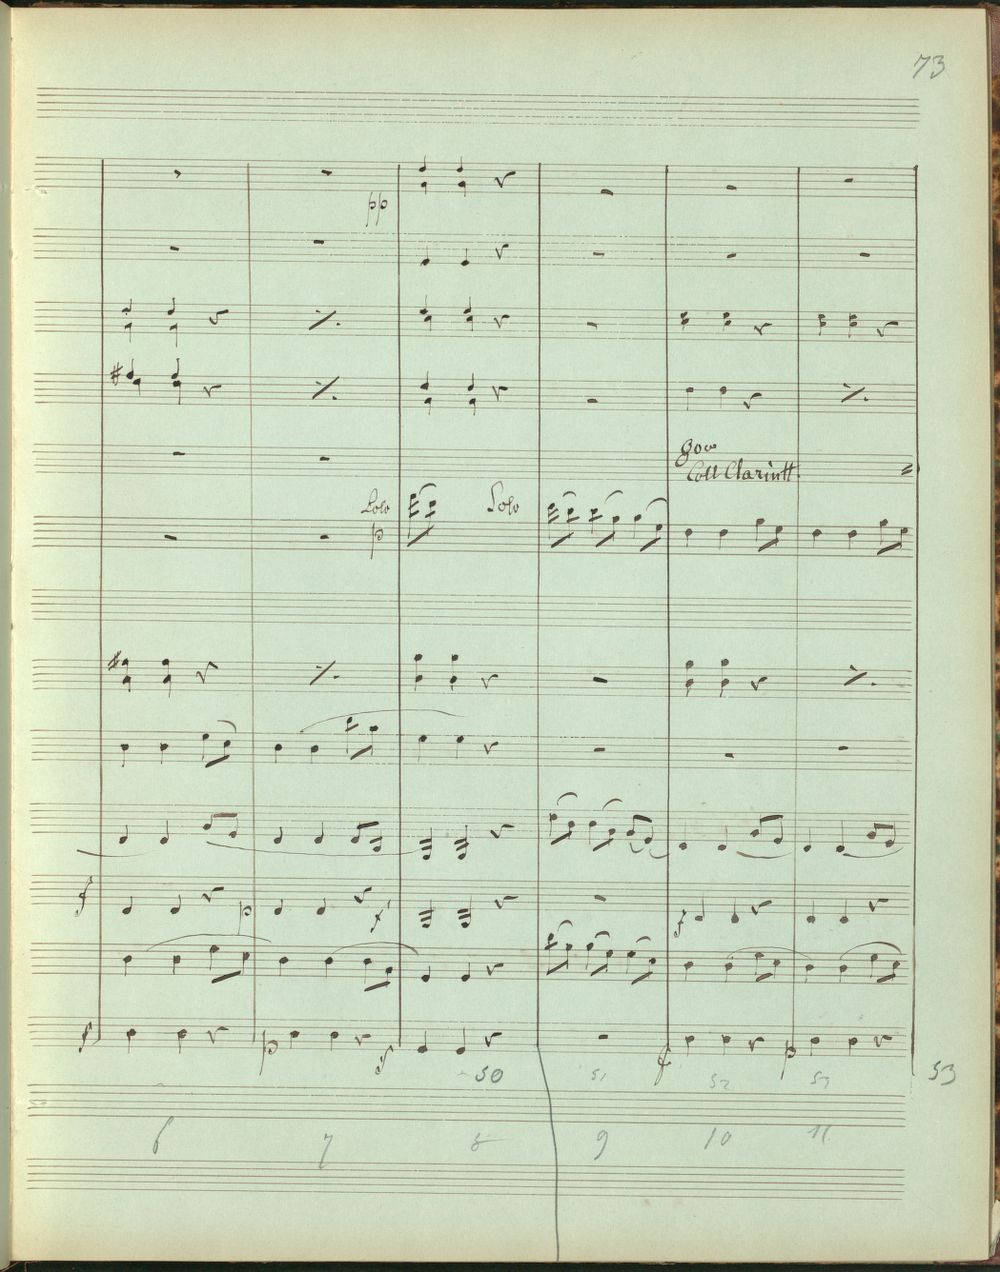 73
pp
8va
Coll Clarintt.
Solo
p
Solo
f
p
f
f
f
p
f
f
p
50
51
52
53
53
6
7
8
9
10
11